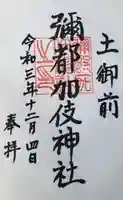 土御前
彌都加伎神社
令和三年十二月四日
奉拝